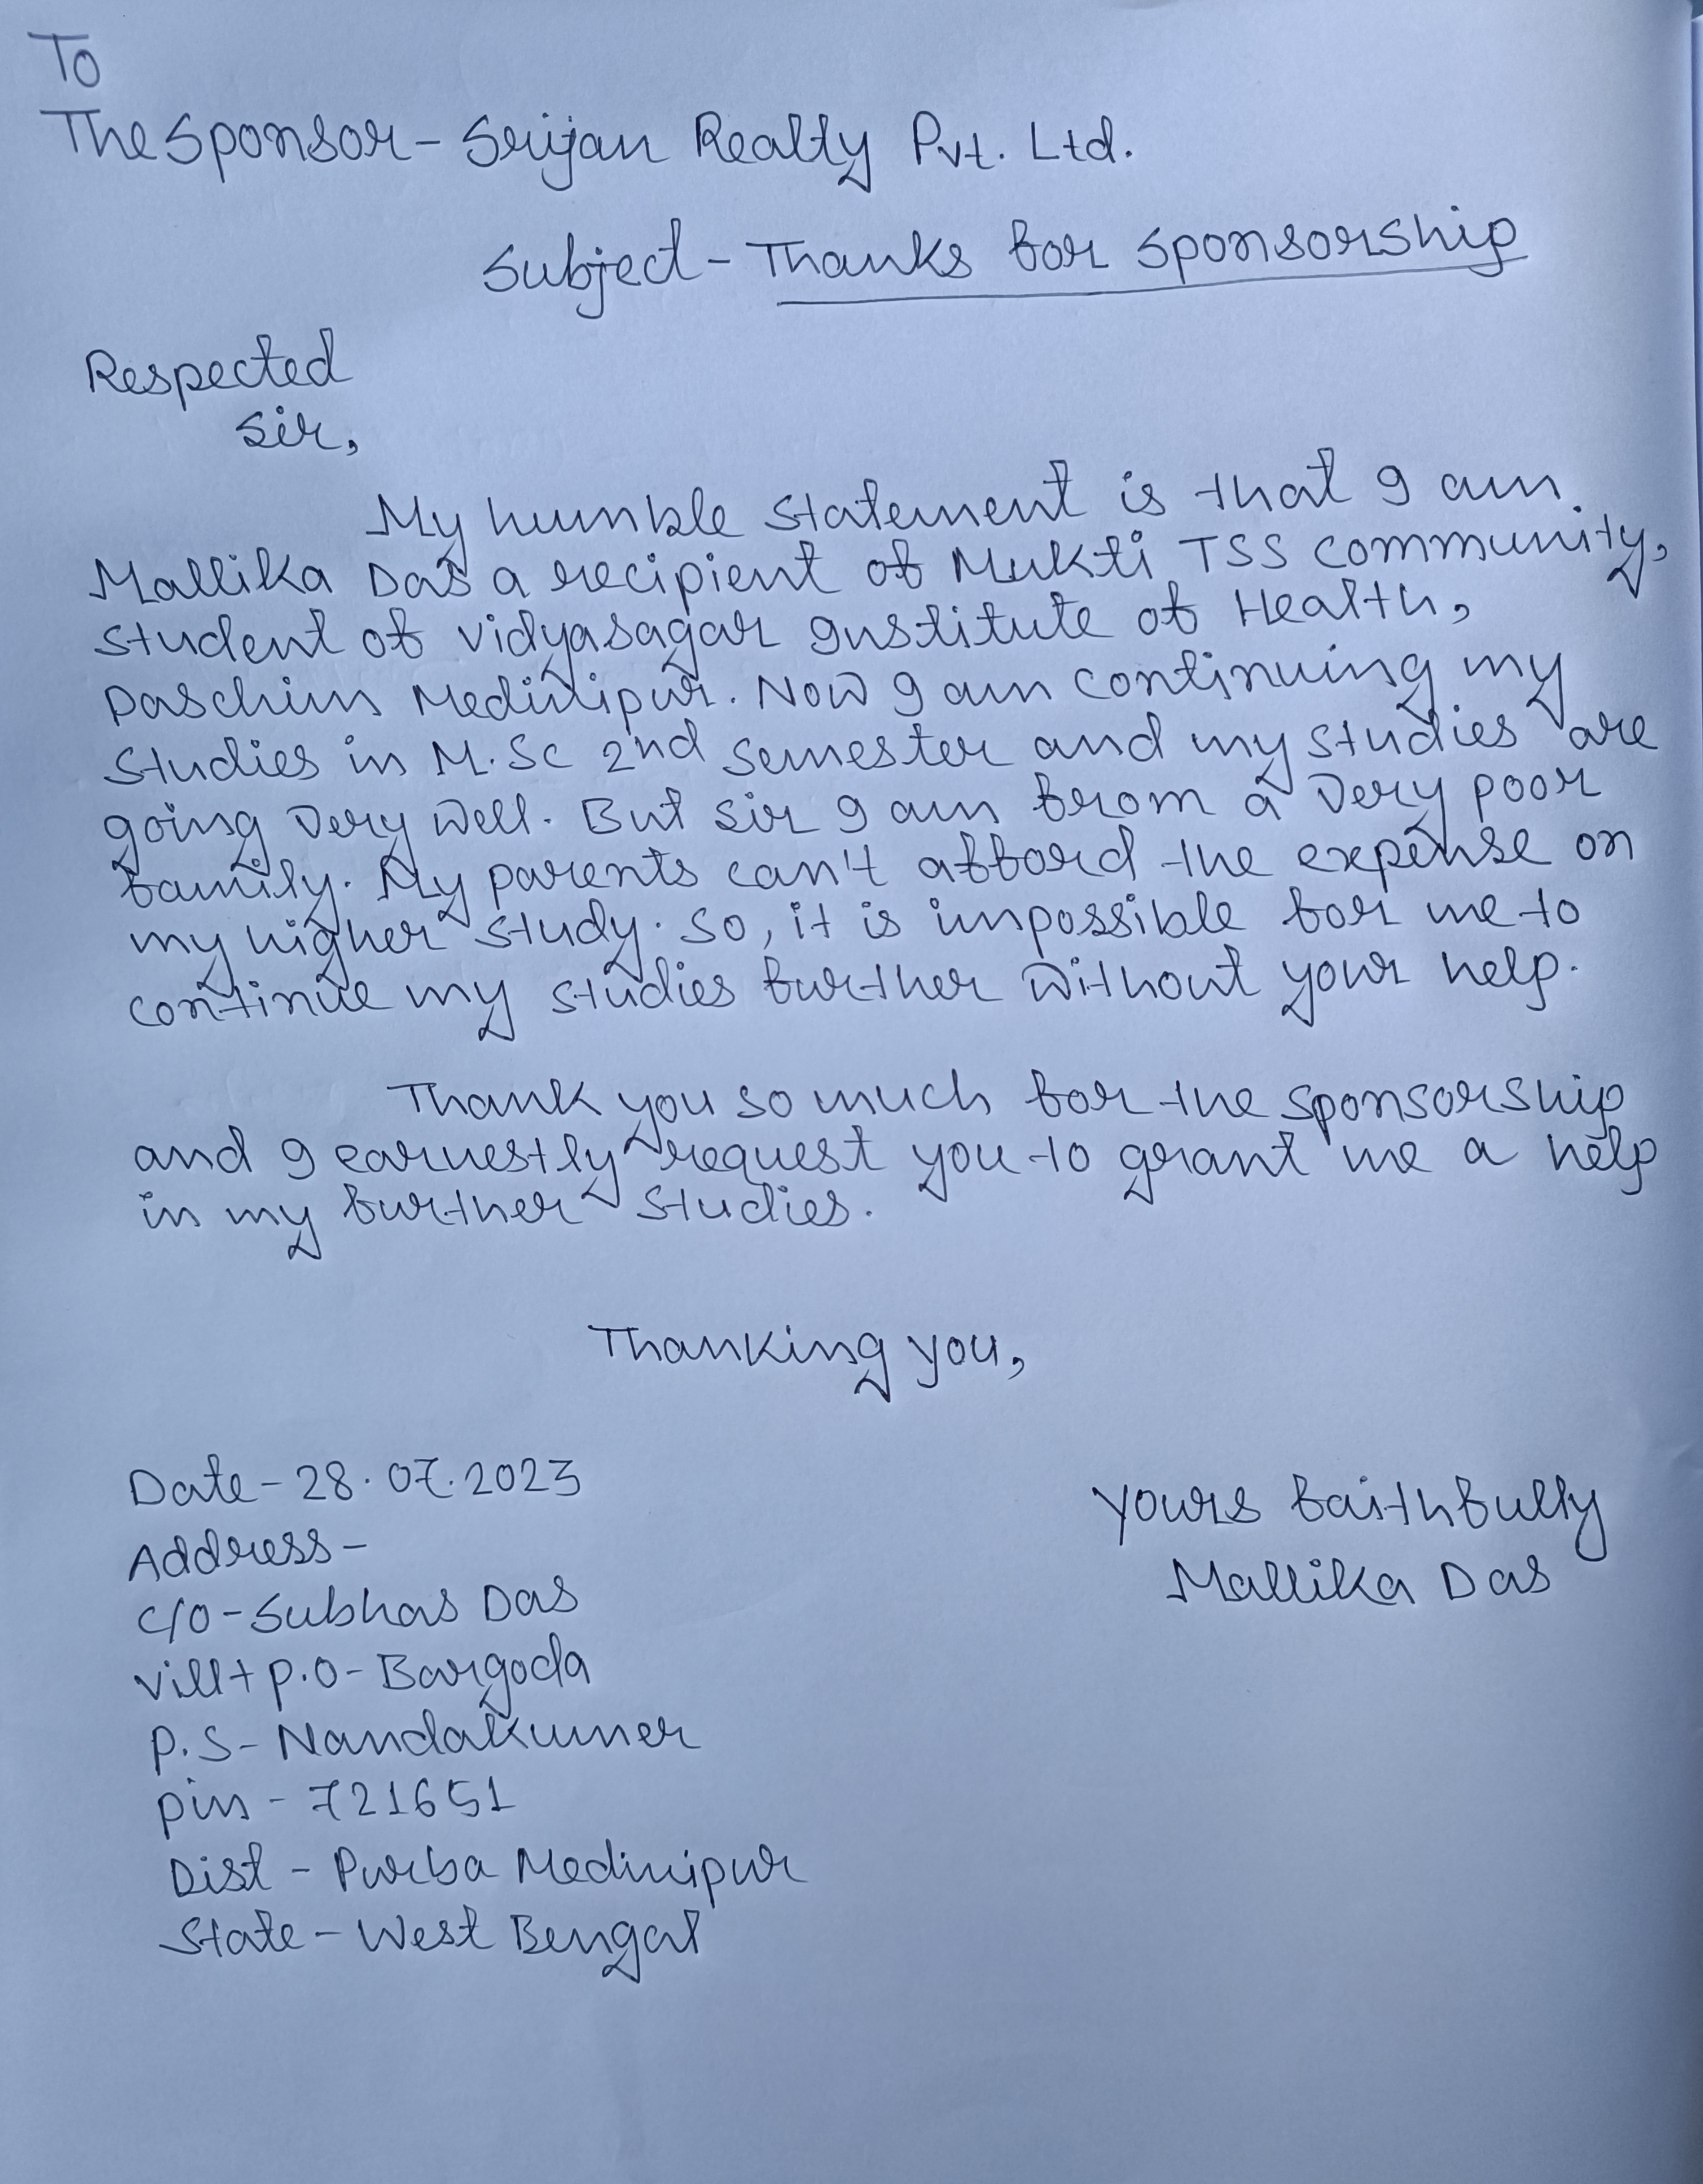 To
The Sponsor - Srijan Realty Pvt. Ltd.
Subject - Thanks for sponsorship
Respected
Sir,
My humble statement is that I am
Mallika Das a recipient of Mukti TSS community,
student of Vidyasagar Institute of Health,
Paschim Medinipur. Now I am continuing my
studies in M.Sc 2nd semester and my studies are
going very well. But sir I am from a very poor
family. My parents can't afford the expense on
my higher study. So, it is impossible for me to
continue my studies further without your help.
Thank you so much for the sponsorship
and I earnestly request you to grant me a help
in my further studies.
Thanking you,
Date - 28.07.2023
Yours faithfully
Address -
Mallika Das
C/O - Subhas Das
Vill + P.O - Bargoda
P.S - Nandakumer
Pin - 721651
Dist - Purba Medinipur
State - West Bengal